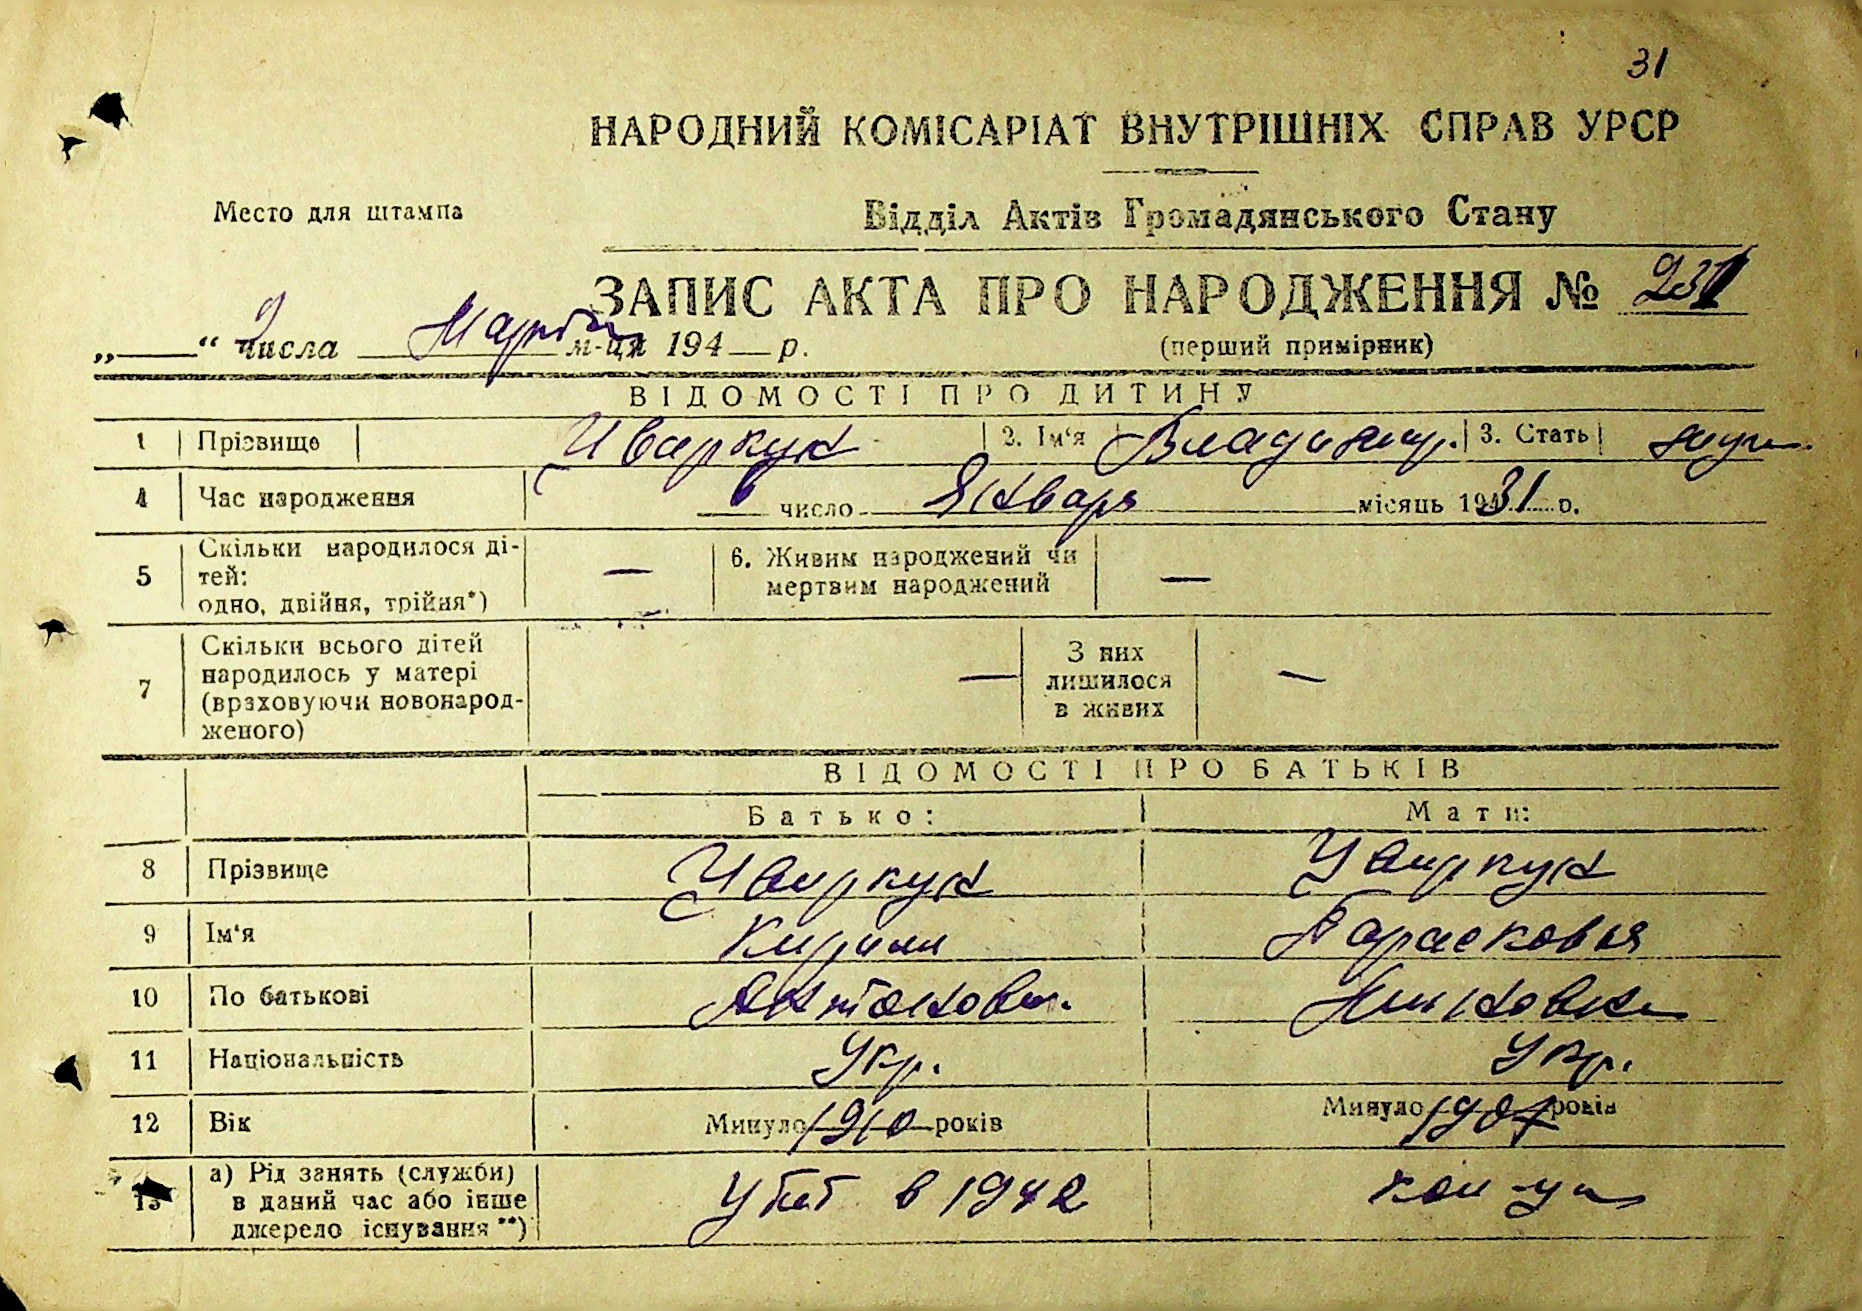 31
НАРОДНИЙ КОМІСАРІАТ ВНУТРІШНІХ СПРАВ УРСР
Место для штампа
Відділ Актів Громадянського Стану
ЗАПИС АКТА ПРО НАРОДЖЕННЯ № 231
„ 9 “ числа Марта м-ця 194 р.
(перший примірник)
ВІДОМОСТІ ПРО ДИТИНУ
1 Прізвище Цвиркун 2. Ім‘я Владимир. 3. Стать муж.
4 Час народження 6 число Января місяць 1931 р.
5 Скільки народилося ді-
тей:
одно, двійня, трійня*) —
6. Живим народжений чи
мертвим народжений —
7 Скільки всього дітей
народилось у матері
(враховуючи новонарод-
женого) —
З них
лишилося
в живих —
ВІДОМОСТІ ПРО БАТЬКІВ
Батько: Мати:
8 Прізвище Цвиркун Цвиркун
9 Ім‘я Кирилл Парасковья
10 По батькові Антонови.
11 Національність Укр. Укр.
12 Вік Минуло 1910 років Минуло 1907 років
13 а) Рід занять (служби)
в даний час або інше
джерело існування**)
Убит в 1942